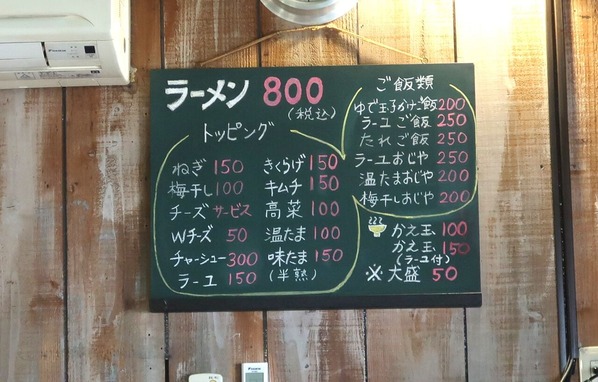 ラーメン 800
(税込)
トッピング
ねぎ 150
梅干し 100
チーズ サービス
Wチーズ 50
チャーシュー 300
ラーユ 150
きくらげ 150
キムチ 150
高菜 100
温たま 100
味たま 150
(半熟)
ご飯類
ゆで玉子かけご飯 200
ラーユご飯 250
たれご飯 250
ラーユおじや 250
温たまおじや 200
梅干しおじや 200
かえ玉 100
かえ玉 150
(ラーユ付)
※大盛 50